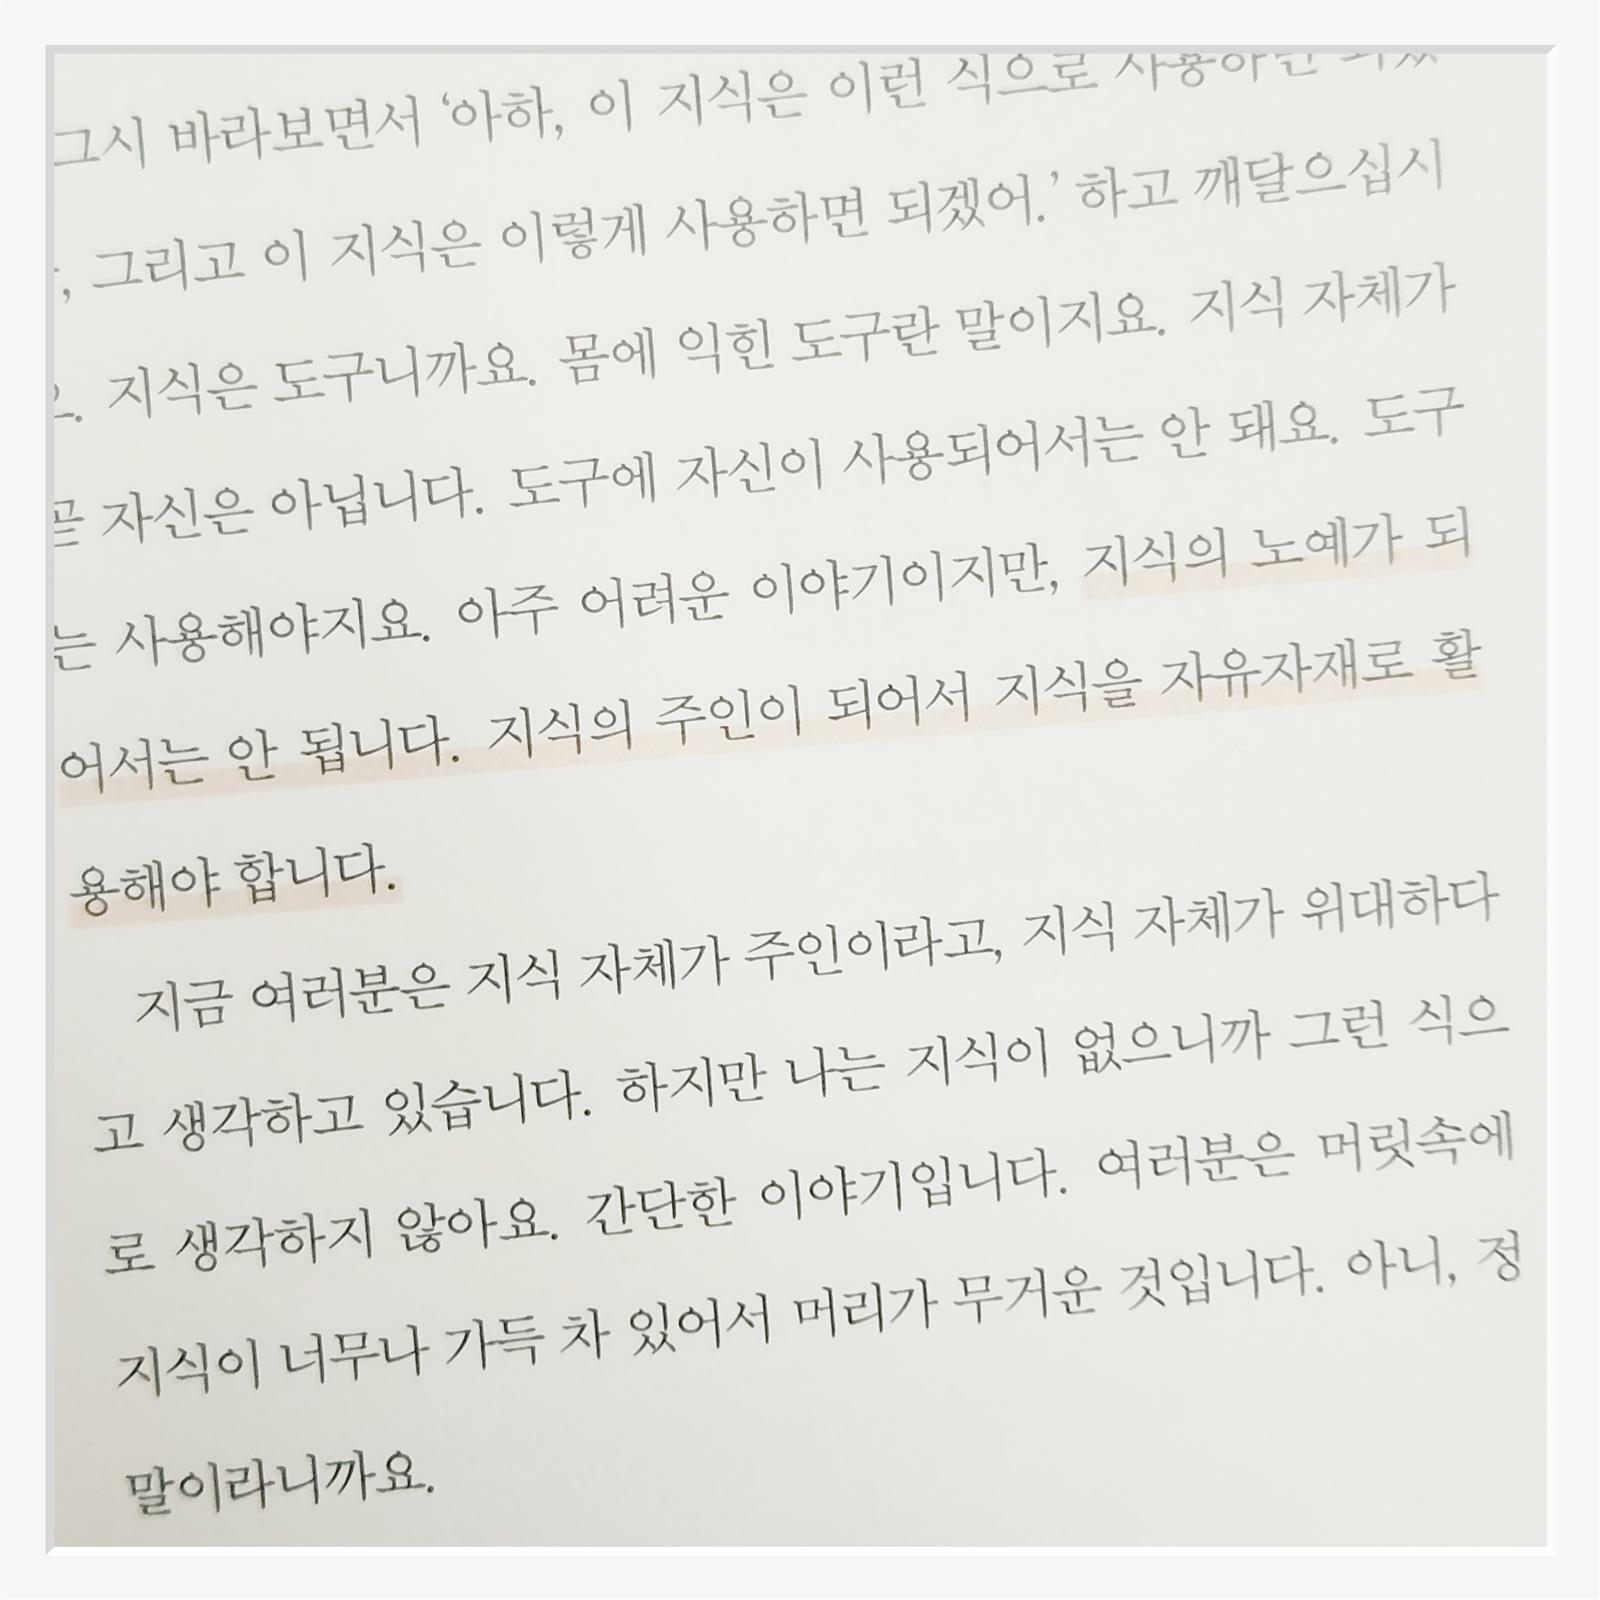 바라보면서 ‘아하, 이 지식은 이런 식으로 사용하면
, 그리고 이 지식은 이렇게 사용하면 되겠어.’ 하고 깨달으십시
. 지식은 도구니까요. 몸에 익힌 도구란 말이지요. 지식 자체가
곧 자신은 아닙니다. 도구에 자신이 사용되어서는 안 돼요. 도구
는 사용해야지요. 아주 어려운 이야기이지만, 지식의 노예가 되
어서는 안 됩니다. 지식의 주인이 되어서 지식을 자유자재로 활
용해야 합니다.
지금 여러분은 지식 자체가 주인이라고, 지식 자체가 위대하다
고 생각하고 있습니다. 하지만 나는 지식이 없으니까 그런 식으
로 생각하지 않아요. 간단한 이야기입니다. 여러분은 머릿속에
지식이 너무나 가득 차 있어서 머리가 무거운 것입니다. 아니, 정
말이라니까요.